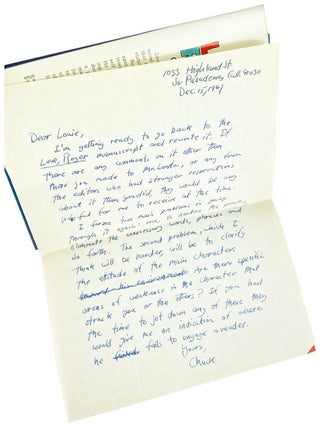 1033 Highland St.
So. Pasadena, Cal. 91030
Dec. 15, 1967
Dear Louie,
I'm getting ready to go back to the
Love, Roger manuscript and rewrite it. If
there are any comments on it other than
those you made to McLendon, or any from
the editors who had stronger reservations
about it than you did, they would be very
helpful for me to receive at this time.
I foresee two main problems in going
through it again: one is
eliminate the unnecessary words, phrases and
so forth. The second problem, which I
think will be harder, will be to clarify
the attitude of the main character.
Are there specific
areas of weakness in the character that
struck you or the others? If you had
the time to jot down any of these they
would give me an indication of where
he fails to engage a reader.
Yours,
Chuck